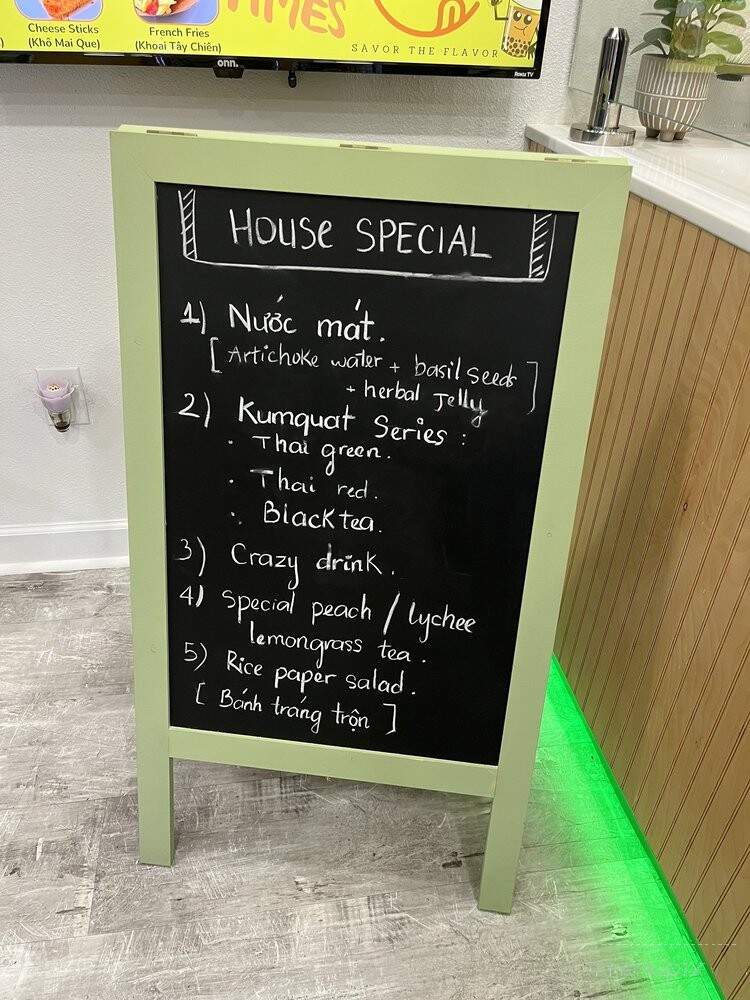 Cheese Sticks
(Khô Mai Que)
French Fries
(Khoai Tây Chiên)
TIMES
SAVOR THE FLAVOR
onn.
Roku TV
HOUSE SPECIAL
1) Nước mát.
[Artichoke water + basil seeds
+ herbal Jelly]
2) Kumquat Series :
. Thai green.
. Thai red.
. Black tea.
3) Crazy drink.
4) Special peach / lychee
lemongrass tea.
5) Rice paper salad.
[ Bánh tráng trộn ]